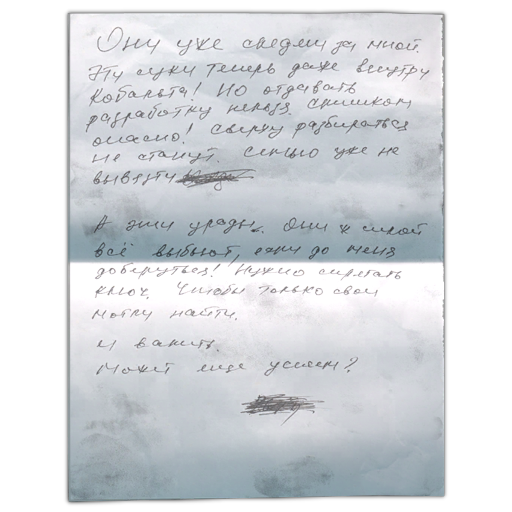 Они уже следили за мной.
Эти суки теперь даже внутри
Кобальта! Но отдавать
разработку нельзя. Слишком
опасно! Сверху разбираться
не станут. Семью уже не
вывезти
А эти уроды. Они ж силой
всё выбьют, если до меня
доберутся! Нужно спрятать
ключ. Чтобы только свои
могли найти.
И валить.
Может еще успею?